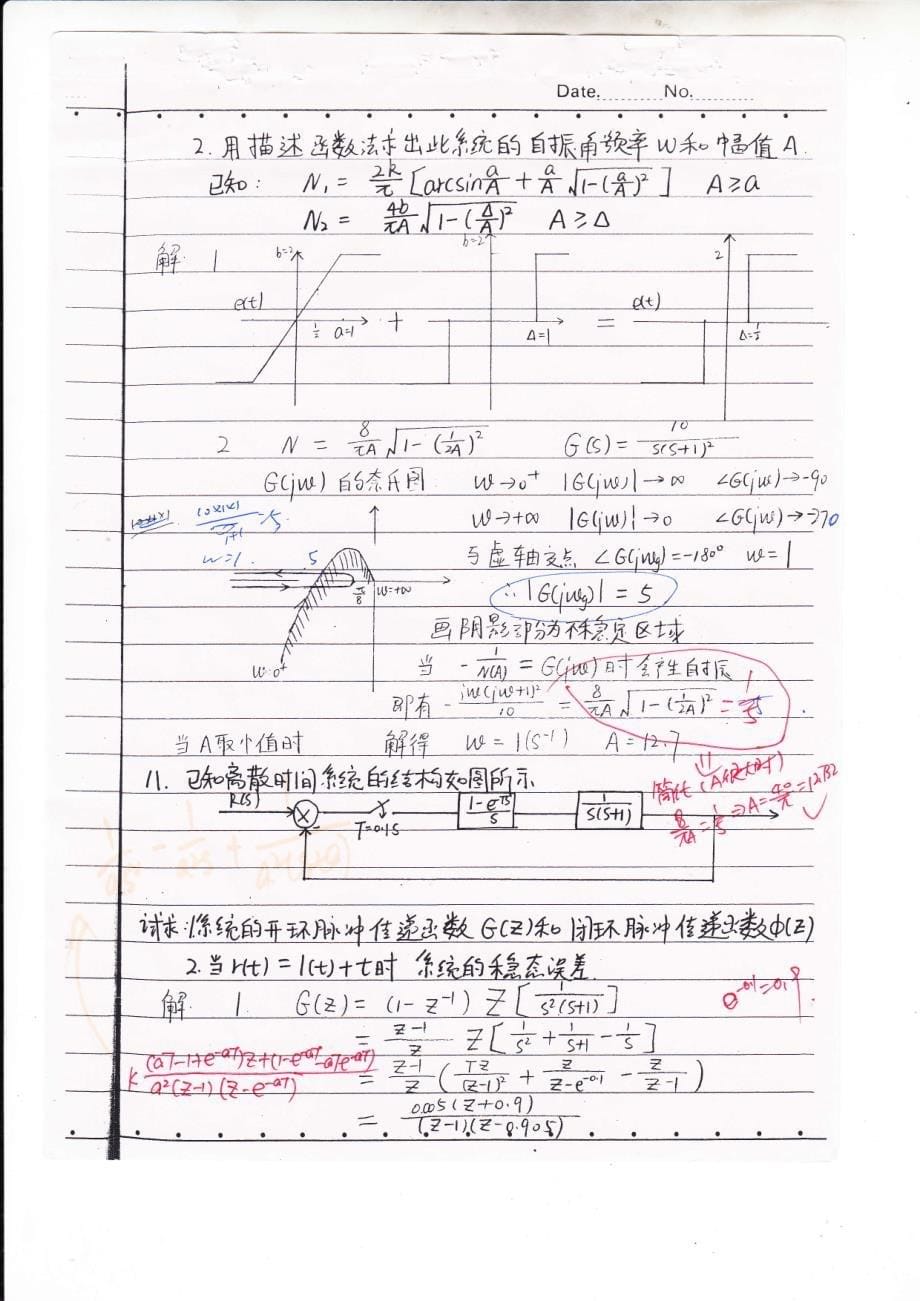 Date. No.
2. 用描述函数法求出此系统的自振角频率 W 和幅值 A.
已知: N₁ = 2k/π [arcsin a/A + a/A √(1-(a/A)²)] A≥a
N₂ = 4b/πA √(1-(Δ/A)²) A≥Δ
解. 1
b=2 b=2 2
e(t) + = e(t)
1/2 a=1 Δ=1 Δ=1/2
2 N = 8/πA √(1-(1/2A)²) G(s) = 10/s(s+1)²
G(jw) 的奈氏图 w→0⁺ |G(jw)|→∞ ∠G(jw)→-90
w→+∞ |G(jw)|→0 ∠G(jw)→-270
w=1 5 与虚轴交点 ∠G(jwg)=-180° w=1
π/8 w=+∞
∴|G(jwg)| = 5
画阴影部分为不稳定区域
w=0⁺ 当 -1/N(A) = G(jw)时会产生自振
即有 -jw(jw+1)²/10 = 8/πA √(1-(1/2A)²) = 1/5
当A取小值时 解得 w=1(s⁻¹) A=12.7
简化(A很大时)
8/πA = 1/5 ⇒ A = 40/π = 12.732
11. 已知离散时间系统的结构如图所示
R(s) T=0.1s 1-e^(-TS)/s 1/s(s+1)
试求:1系统的开环脉冲传递函数 G(z)和闭环脉冲传递函数Φ(z)
2.当r(t)=1(t)+t时 系统的稳态误差.
e^(-0.1)=0.9
解 1. G(z) = (1-z⁻¹) Z[1/s²(s+1)]
= z-1/z Z[1/s² + 1/s+1 - 1/s]
K (aT-1+e^(-aT))z+(1-e^(-aT)-aTe^(-aT))/a²(z-1)(z-e^(-aT))
= z-1/z (Tz/(z-1)² + z/z-e^(-0.1) - z/z-1)
= 0.005(z+0.9)/(z-1)(z-0.905)